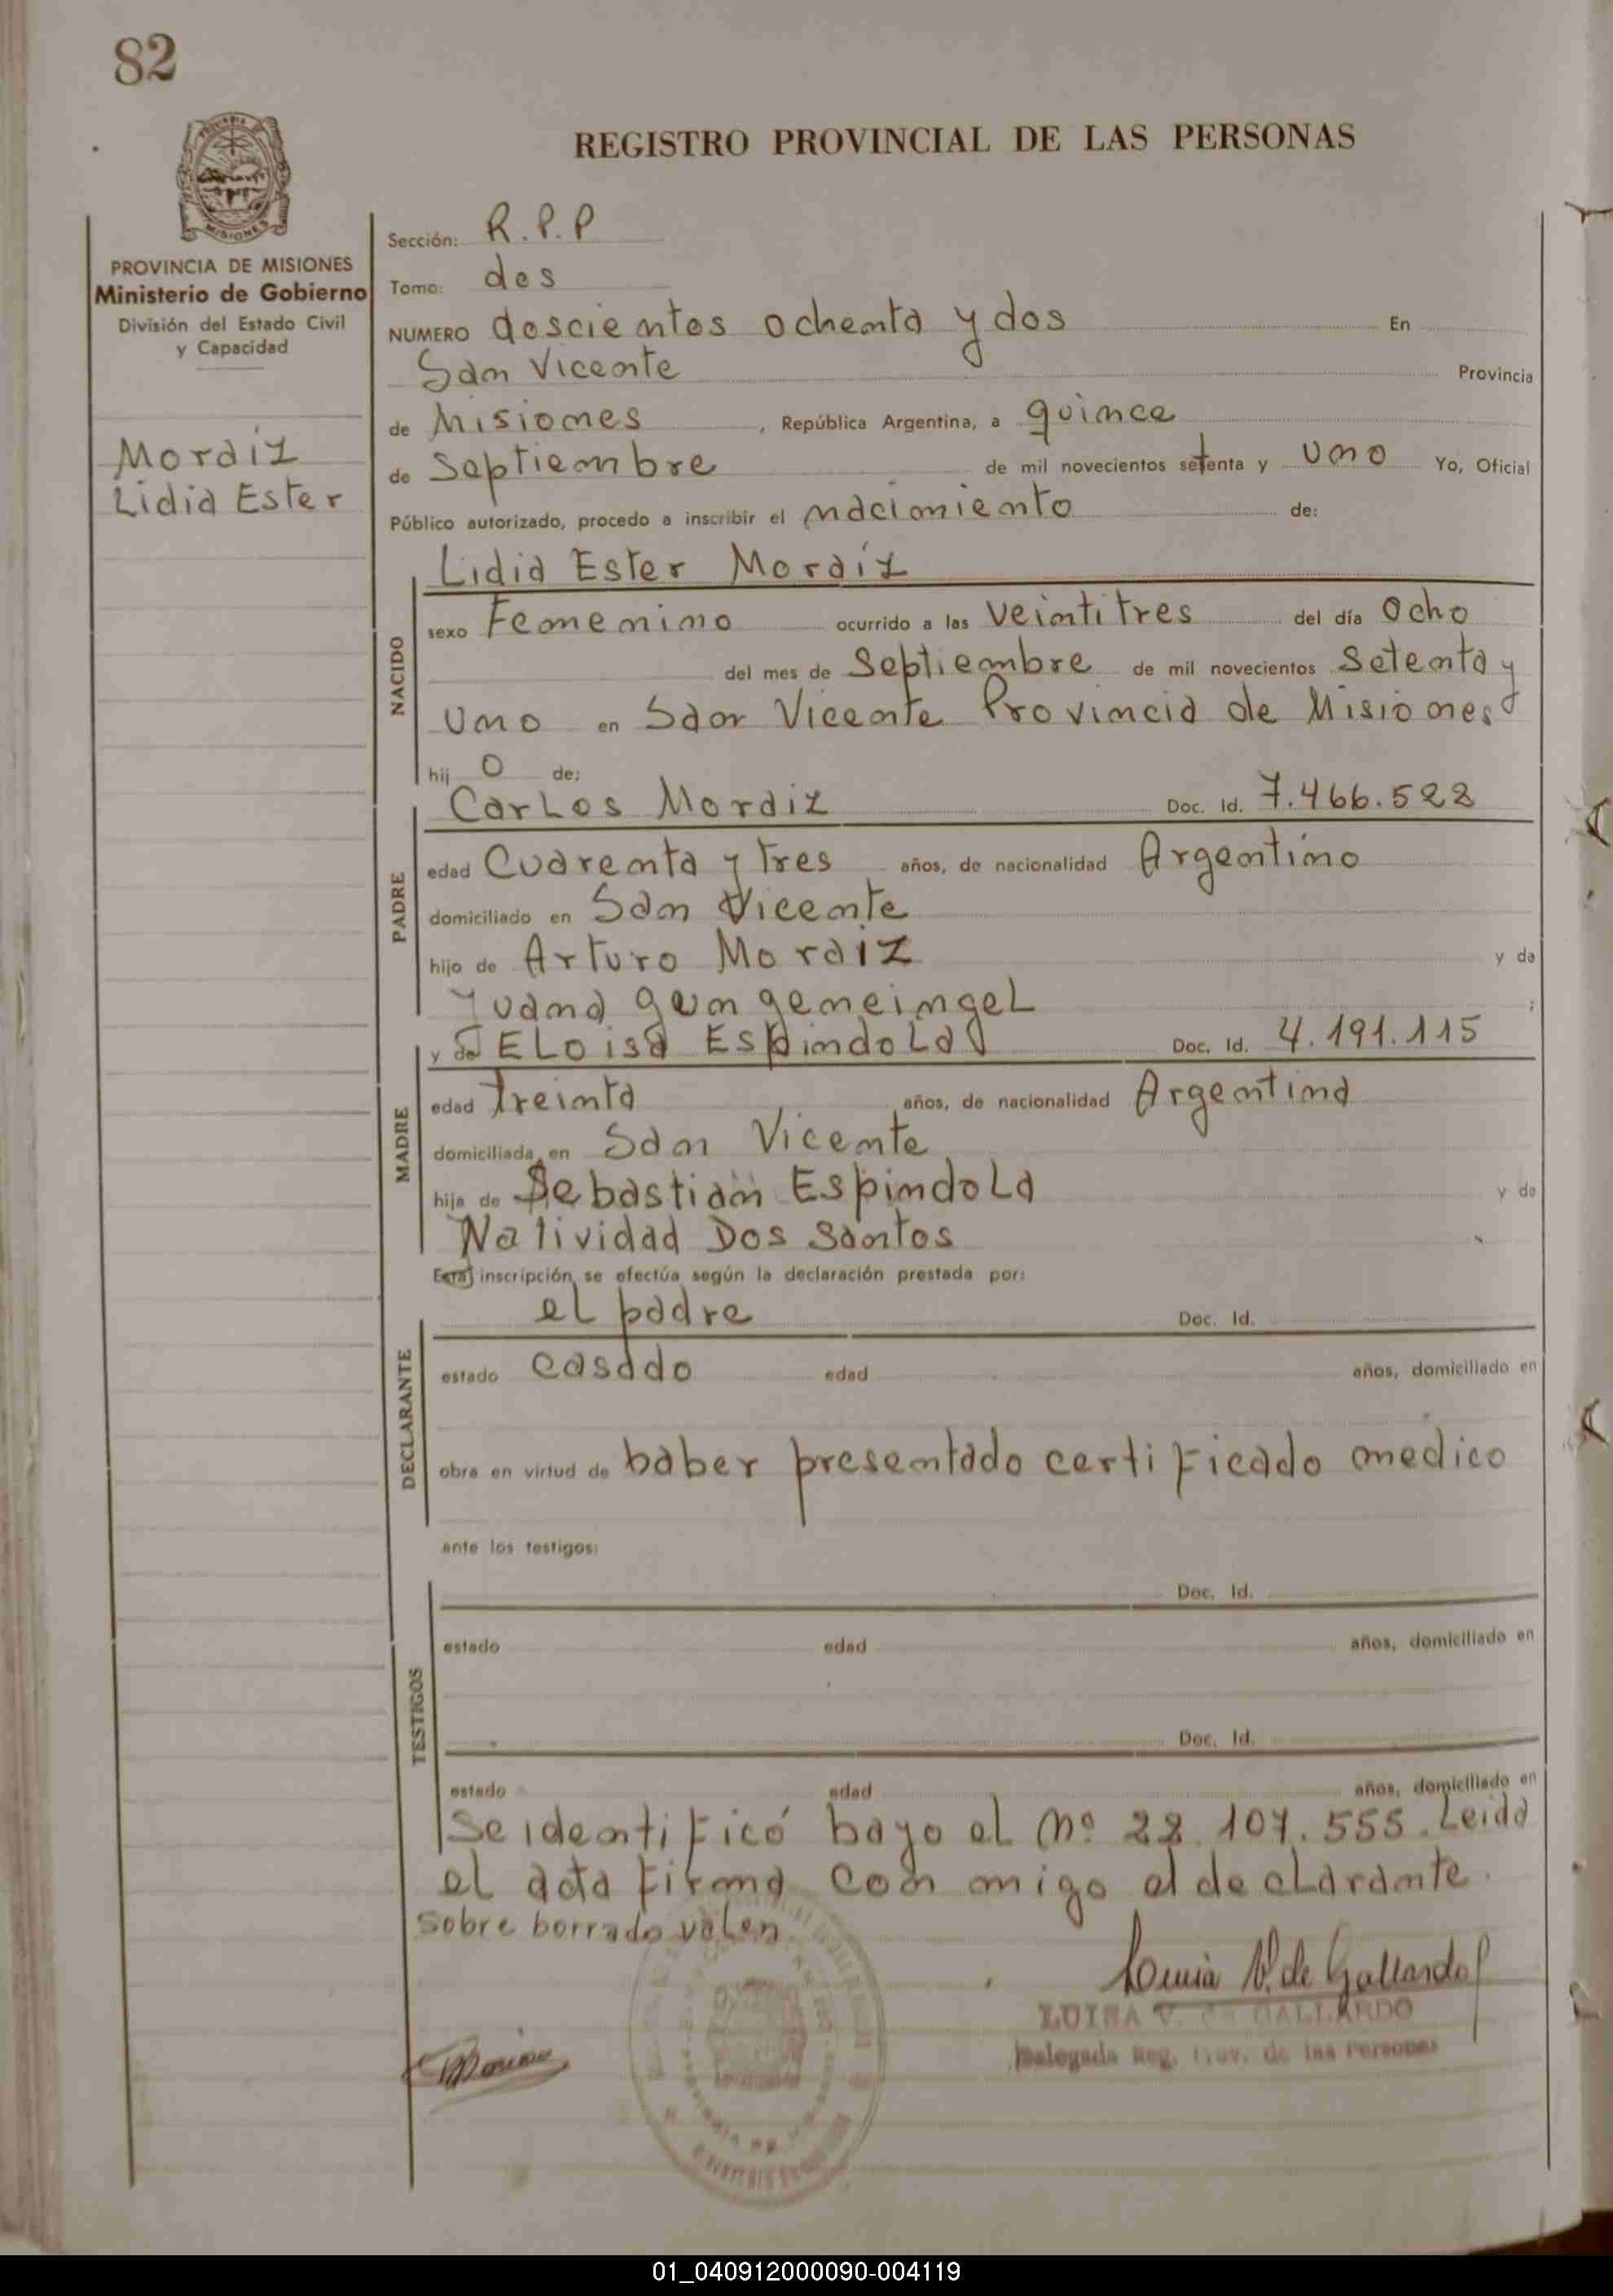 82
REGISTRO PROVINCIAL DE LAS PERSONAS
MISIONES
PROVINCIA DE MISIONES
Ministerio de Gobierno
División del Estado Civil
y Capacidad
Mordiz
Lidia Ester
Sección: R.P.P
Tomo: dos
NUMERO doscientos ochenta y dos En
San Vicente Provincia
de Misiones, República Argentina, a quince
de Septiembre de mil novecientos setenta y uno Yo, Oficial
Público autorizado, procedo a inscribir el nacimiento de:
Lidia Ester Mordíz
NACIDO
sexo Femenino ocurrido a las veintitres del día ocho
del mes de Septiembre de mil novecientos setenta y
uno en San Vicente Provincia de Misiones
hij o de:
Carlos Mordiz Doc. Id. 7.466.522
PADRE
edad Cuarenta y tres años, de nacionalidad Argentino
domiciliado en San Vicente
hijo de Arturo Mordiz y de
Juana ;
y de ELoisa EspindoLa Doc. Id. 4.191.115
MADRE
edad treinta años, de nacionalidad Argentina
domiciliada en San Vicente
hija de Sebastian EspindoLa y de
Natividad Dos Santos
Esta inscripción se efectúa según la declaración prestada por:
el padre Doc. Id.
DECLARANTE
estado casado edad años, domiciliado en
obra en virtud de haber presentado certificado medico
ante los testigos:
Doc. Id.
TESTIGOS
estado edad años, domiciliado en
Doc. Id.
estado edad años, domiciliado en
Se identificó bajo el nº 22.107.555. Leida
el acta firma con migo el declarante.
Sobre borrado valen
Luisa V. de Gallardo
LUISA V. de GALLARDO
Delegada Reg. Prov. de las Personas
01_040912000090-004119